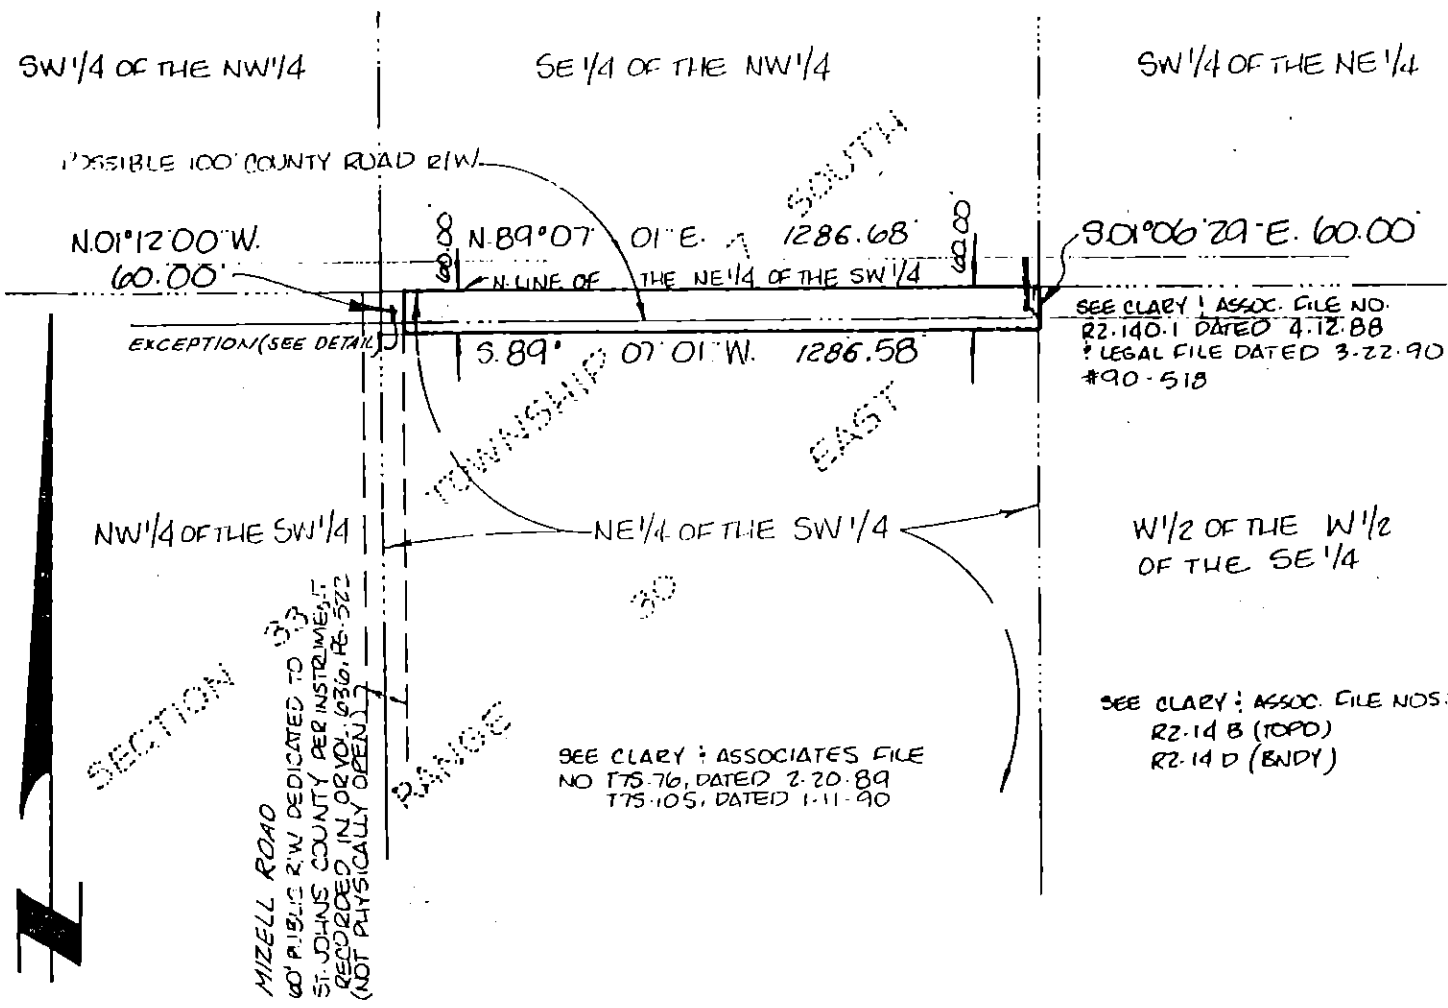 SW 1/4 OF THE NW 1/4
SE 1/4 OF THE NW 1/4
SW 1/4 OF THE NE 1/4
POSSIBLE 100' COUNTY ROAD R/W
SOUTH
N.01°12'00"W.
60.00'
60.00
N.89°07' 01"E. 1286.68'
60.00
S.01°06'29"E. 60.00'
N. LINE OF THE NE 1/4 OF THE SW 1/4
EXCEPTION (SEE DETAIL)
S.89° 07'01"W. 1286.58'
SEE CLARY & ASSOC. FILE NO.
R2.140.1 DATED 4.12.88
& LEGAL FILE DATED 3-22-90
#90-518
TOWNSHIP 7
EAST
NW 1/4 OF THE SW 1/4
NE 1/4 OF THE SW 1/4
W 1/2 OF THE W 1/2
OF THE SE 1/4
SECTION 33
30
RANGE
MIZELL ROAD
60' PUBLIC R/W DEDICATED TO
ST. JOHNS COUNTY PER INSTRUMENT
RECORDED IN OR VOL. 636, PG. 522
(NOT PHYSICALLY OPEN)
SEE CLARY & ASSOCIATES FILE
NO T75-76, DATED 2-20-89
T75-105, DATED 1-11-90
SEE CLARY & ASSOC. FILE NOS.
R2-14 B (TOPO)
R2-14 D (BNDY)